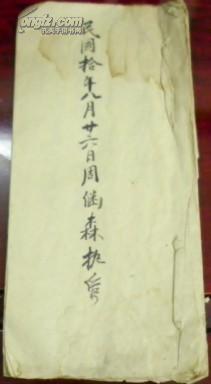 kongfz.com
孔夫子旧书网
民国拾年八月廿六日周福森抄